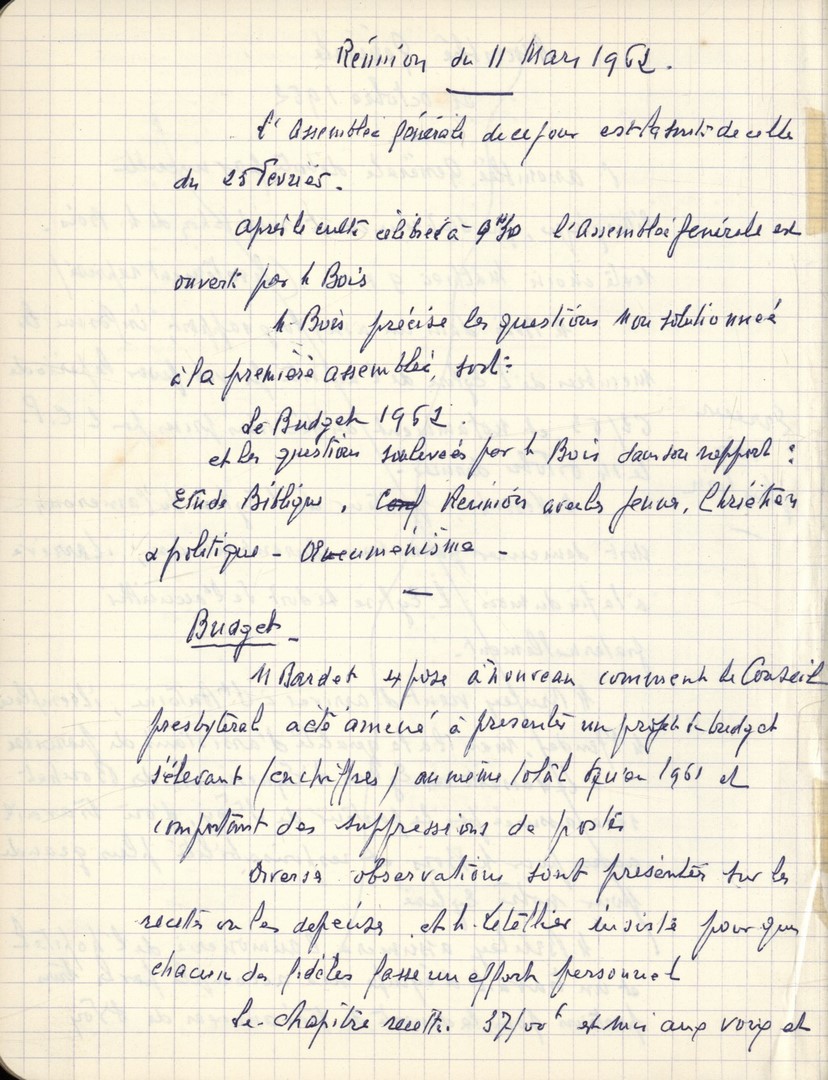 Réunion du 11 Mars 1962.
l'Assemblée générale de ce jour est la suite de celle
du 25 Février.
après le culte célébré à 9H30 l'Assemblée générale est
ouverte par M Bois
M. Bois précise les questions non solutionnées
à la première assemblée, soit :
Le Budget 1962.
et les questions soulevées par M Bois dans son rapport :
Etude Biblique. Conf Réunion avec les jeunes, Chrétien
& politique - Oecuménisme -
Budget -
M Bardet expose à nouveau comment le Conseil
presbytéral a été amené à présenter un projet de budget
s'élevant (en chiffres) au même total qu'en 1961 et
comportant des suppressions de postes
Diverses observations sont présentées sur les
recettes ou les dépenses et M. Letellier insiste pour que
chacun des fidèles fasse un effort personnel
Le chapitre recettes. est mis aux voix et